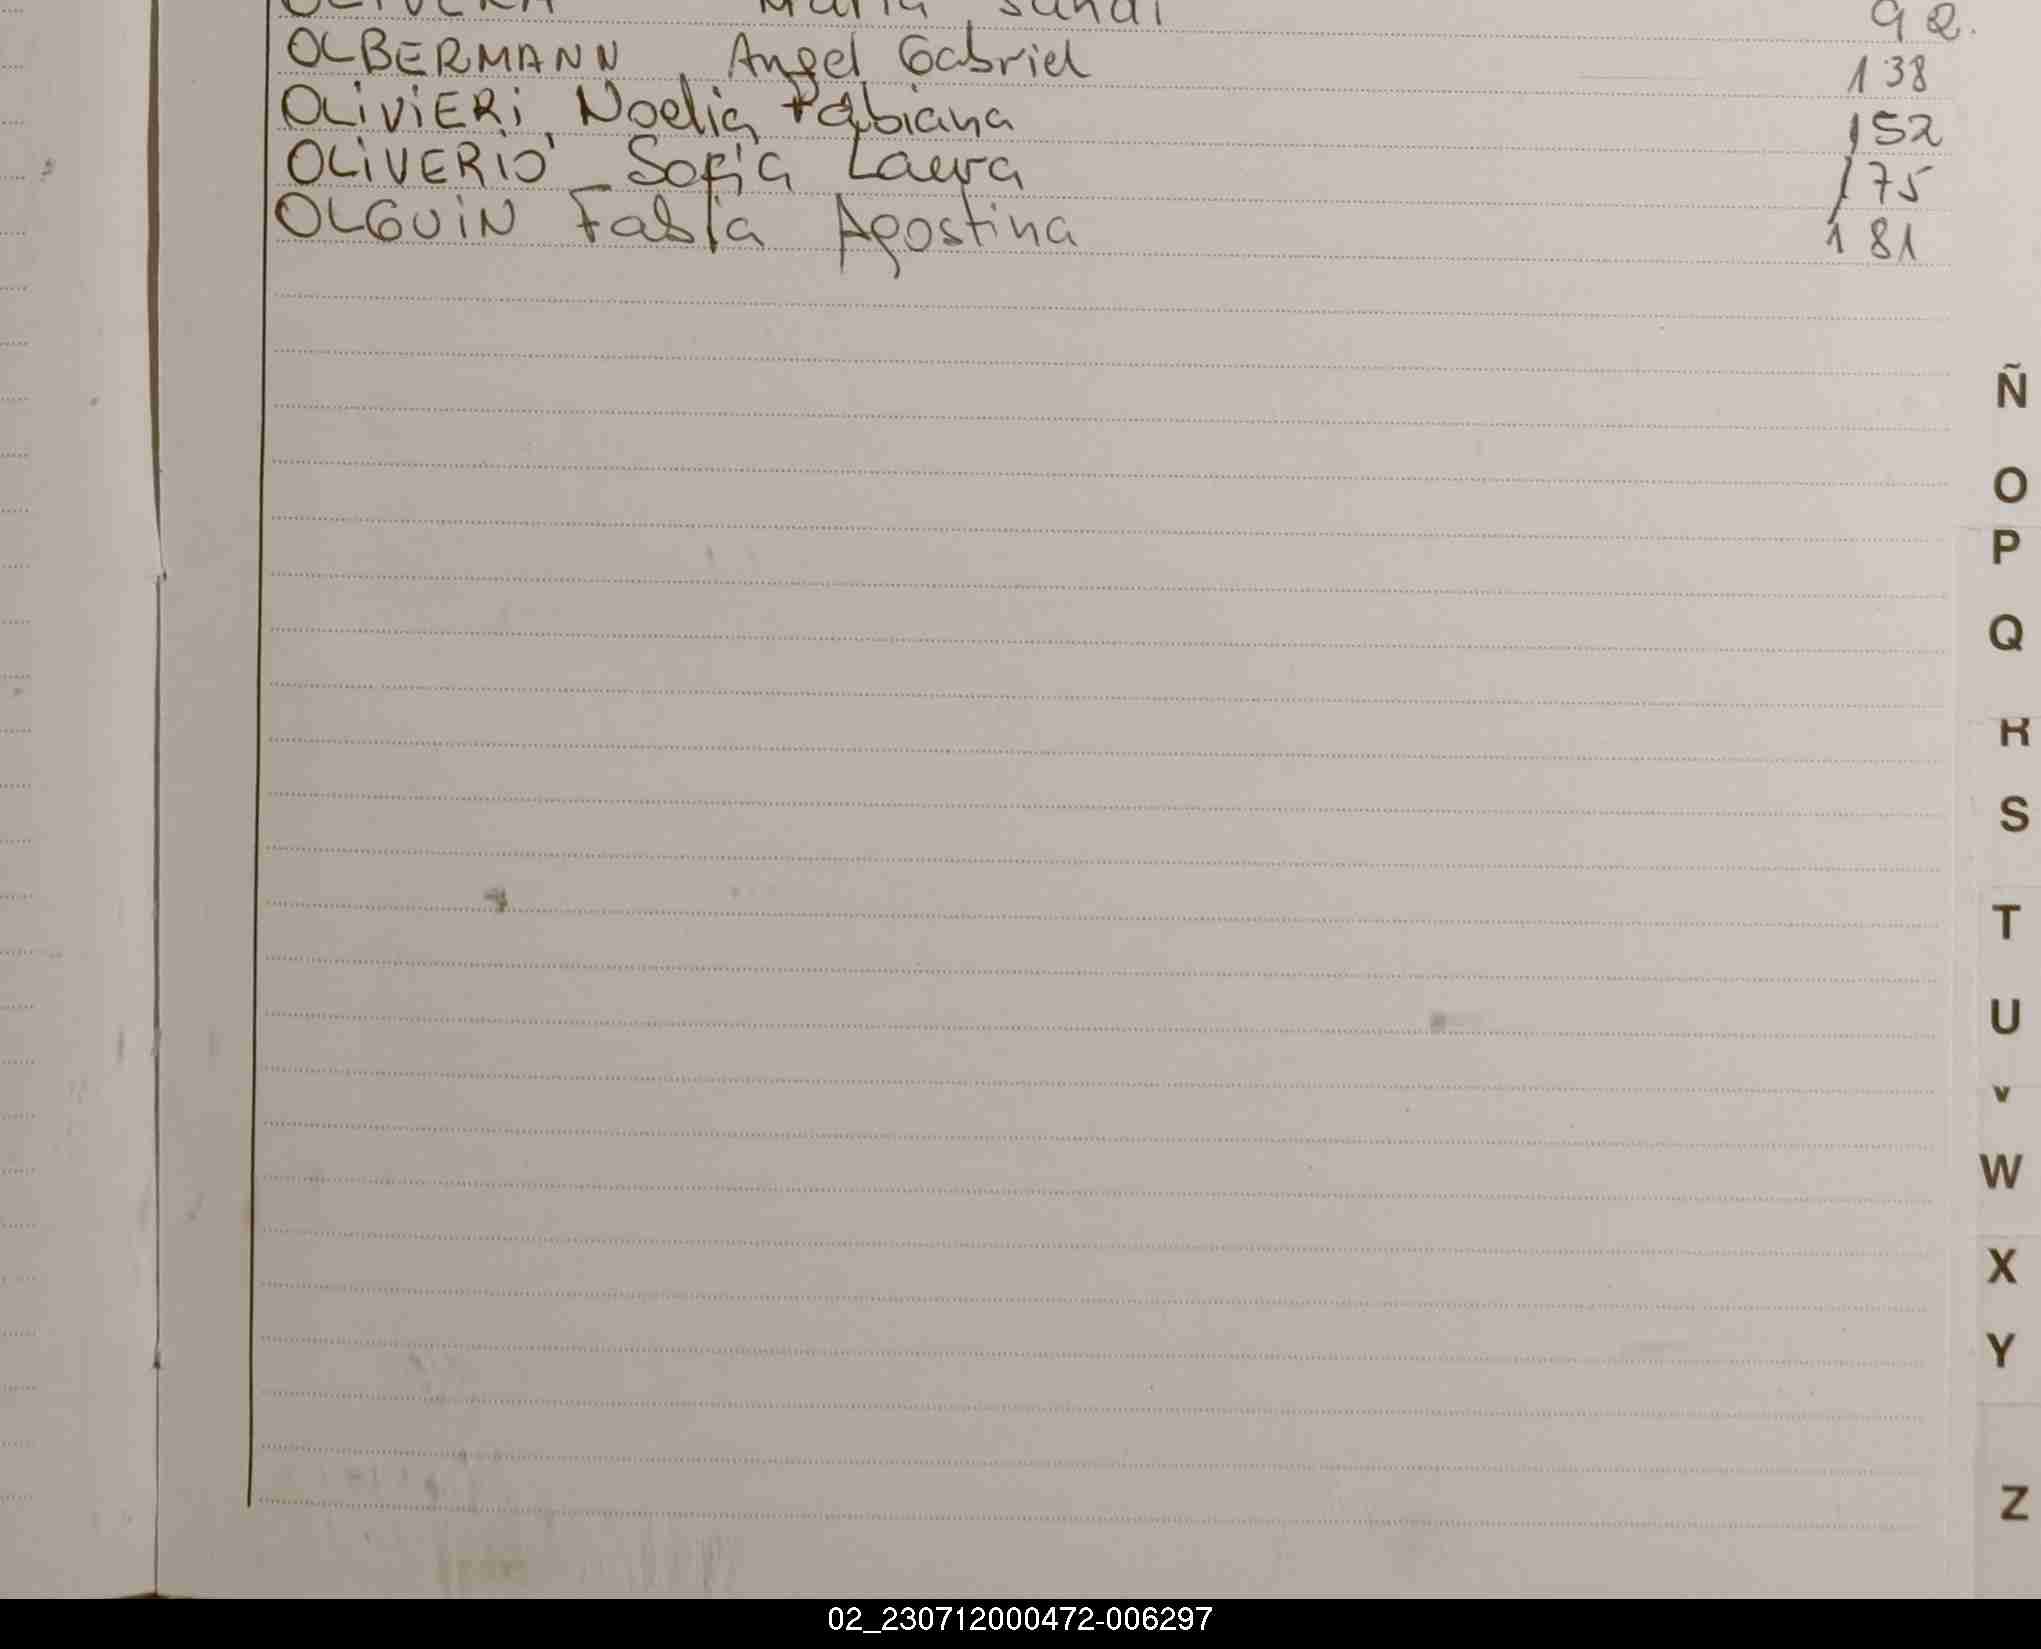 OLIVERA María Sandi 92.
OLBERMANN, Angel Gabriel 138
OLIVIERI, Noelia Fabiana 152
OLIVERIO Sofia Laura 175
OLGUIN Fabia Agostina 181
Ñ
O
P
Q
R
S
T
U
V
W
X
Y
Z
02_230712000472-006297